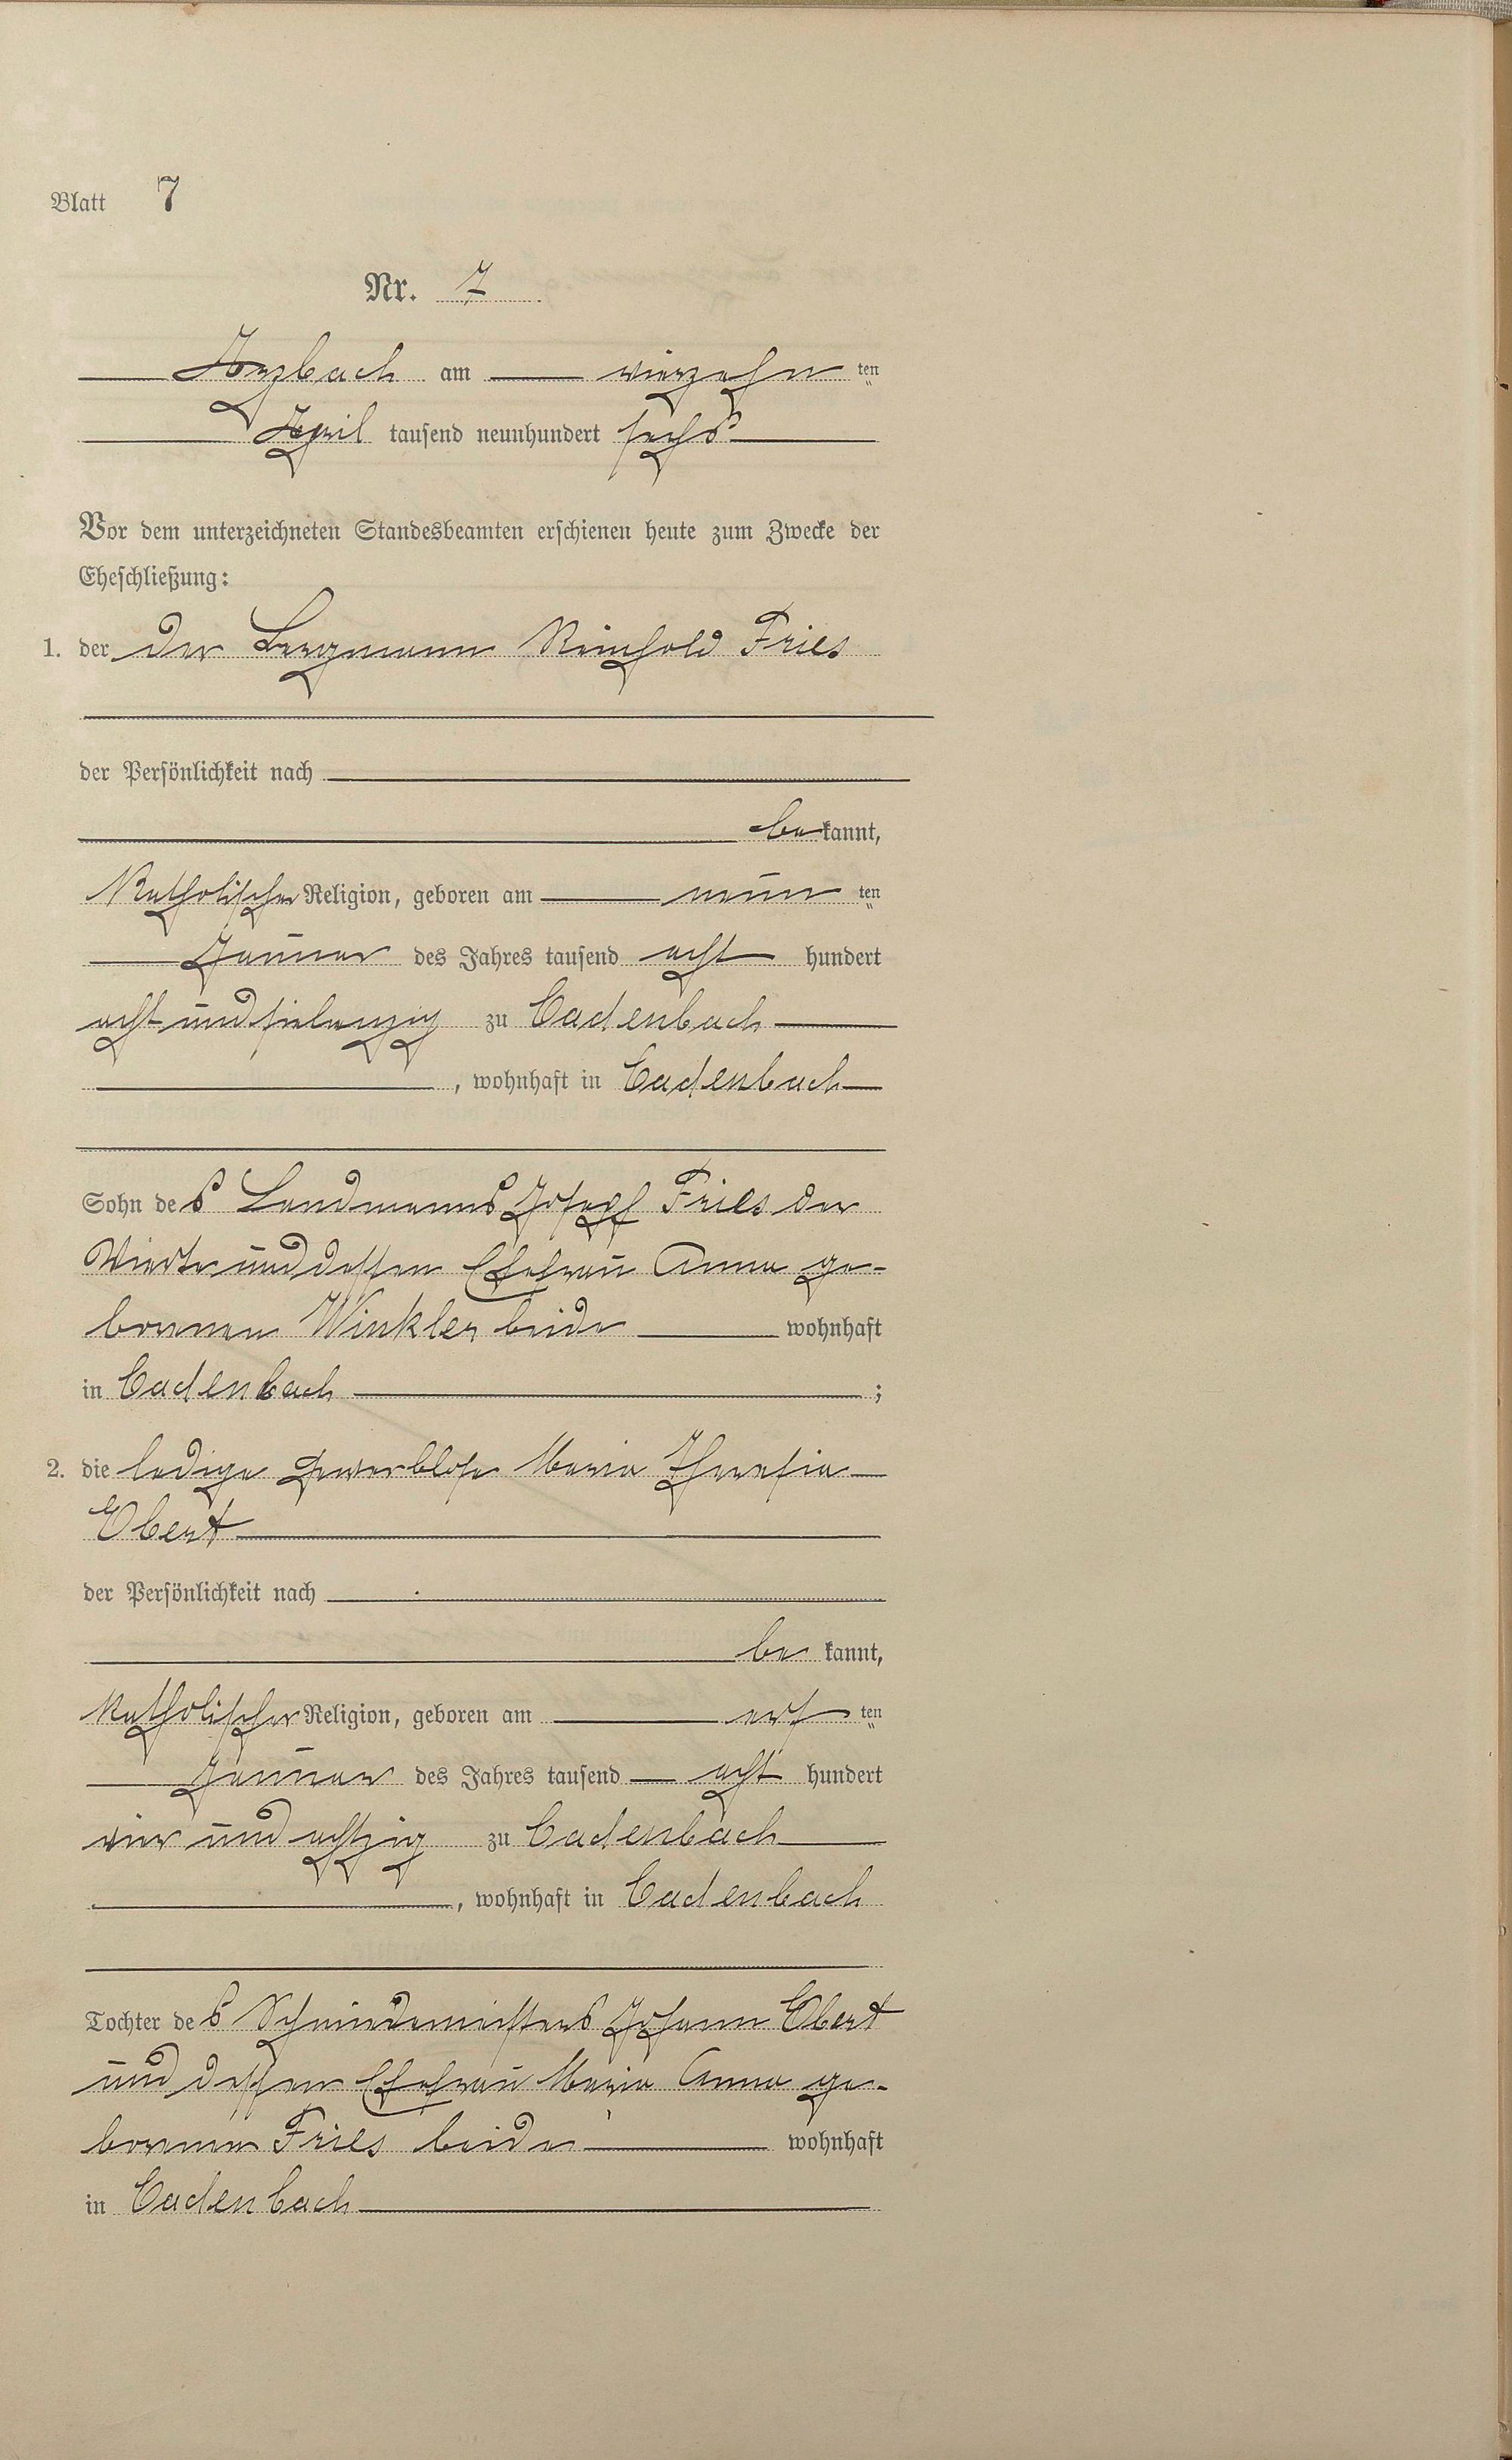 Blatt 7
Nr. 7
Arzbach am vierzehn ten
April tausend neunhundert sechs
Vor dem unterzeichneten Standesbeamten erschienen heute zum Zwecke der
Eheschließung:
1. der der Bergmann Reinhold Fries
der Persönlichkeit nach
be kannt,
Katholischer Religion, geboren am neun ten
Januar des Jahres tausend acht hundert
acht und siebenzig zu Cadenbach
, wohnhaft in Cadenbach
Sohn des Landmanns Josepf Fries der
Vierte und dessen Ehefrau Anna ge-
borenen Winkler beide wohnhaft
in Cadenbach ;
2. die ledige gewerblose Maria Theresia
Ebert
der Persönlichkeit nach
be kannt,
katholischer Religion, geboren am ers ten
Januar des Jahres tausend acht hundert
vier und achtzig zu Cadenbach
, wohnhaft in Cadenbach
Tochter des Schmiedemeisters Johann Ebert
und dessen Ehefrau Maria Anna ge-
borenen Fries beide wohnhaft
in Cadenbach